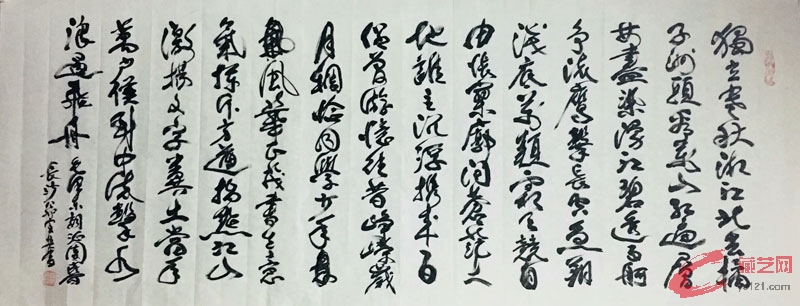 獨立寒秋湘江北去橘
子洲頭看萬山紅遍層
林盡染漫江碧透百舸
争流鹰擊長空魚翔
淺底萬類霜天競自
由悵寥廓问蒼茫大
地誰主沉浮携来百
侣曾游憶往昔峥嵘歲
月稠恰同學少年
風華正茂書生意
氣揮斥方遒指點江山
激揚文字糞土當年
萬户侯到中流擊水
浪遏飛舟
毛澤東詞沁園春
長沙
藏艺网